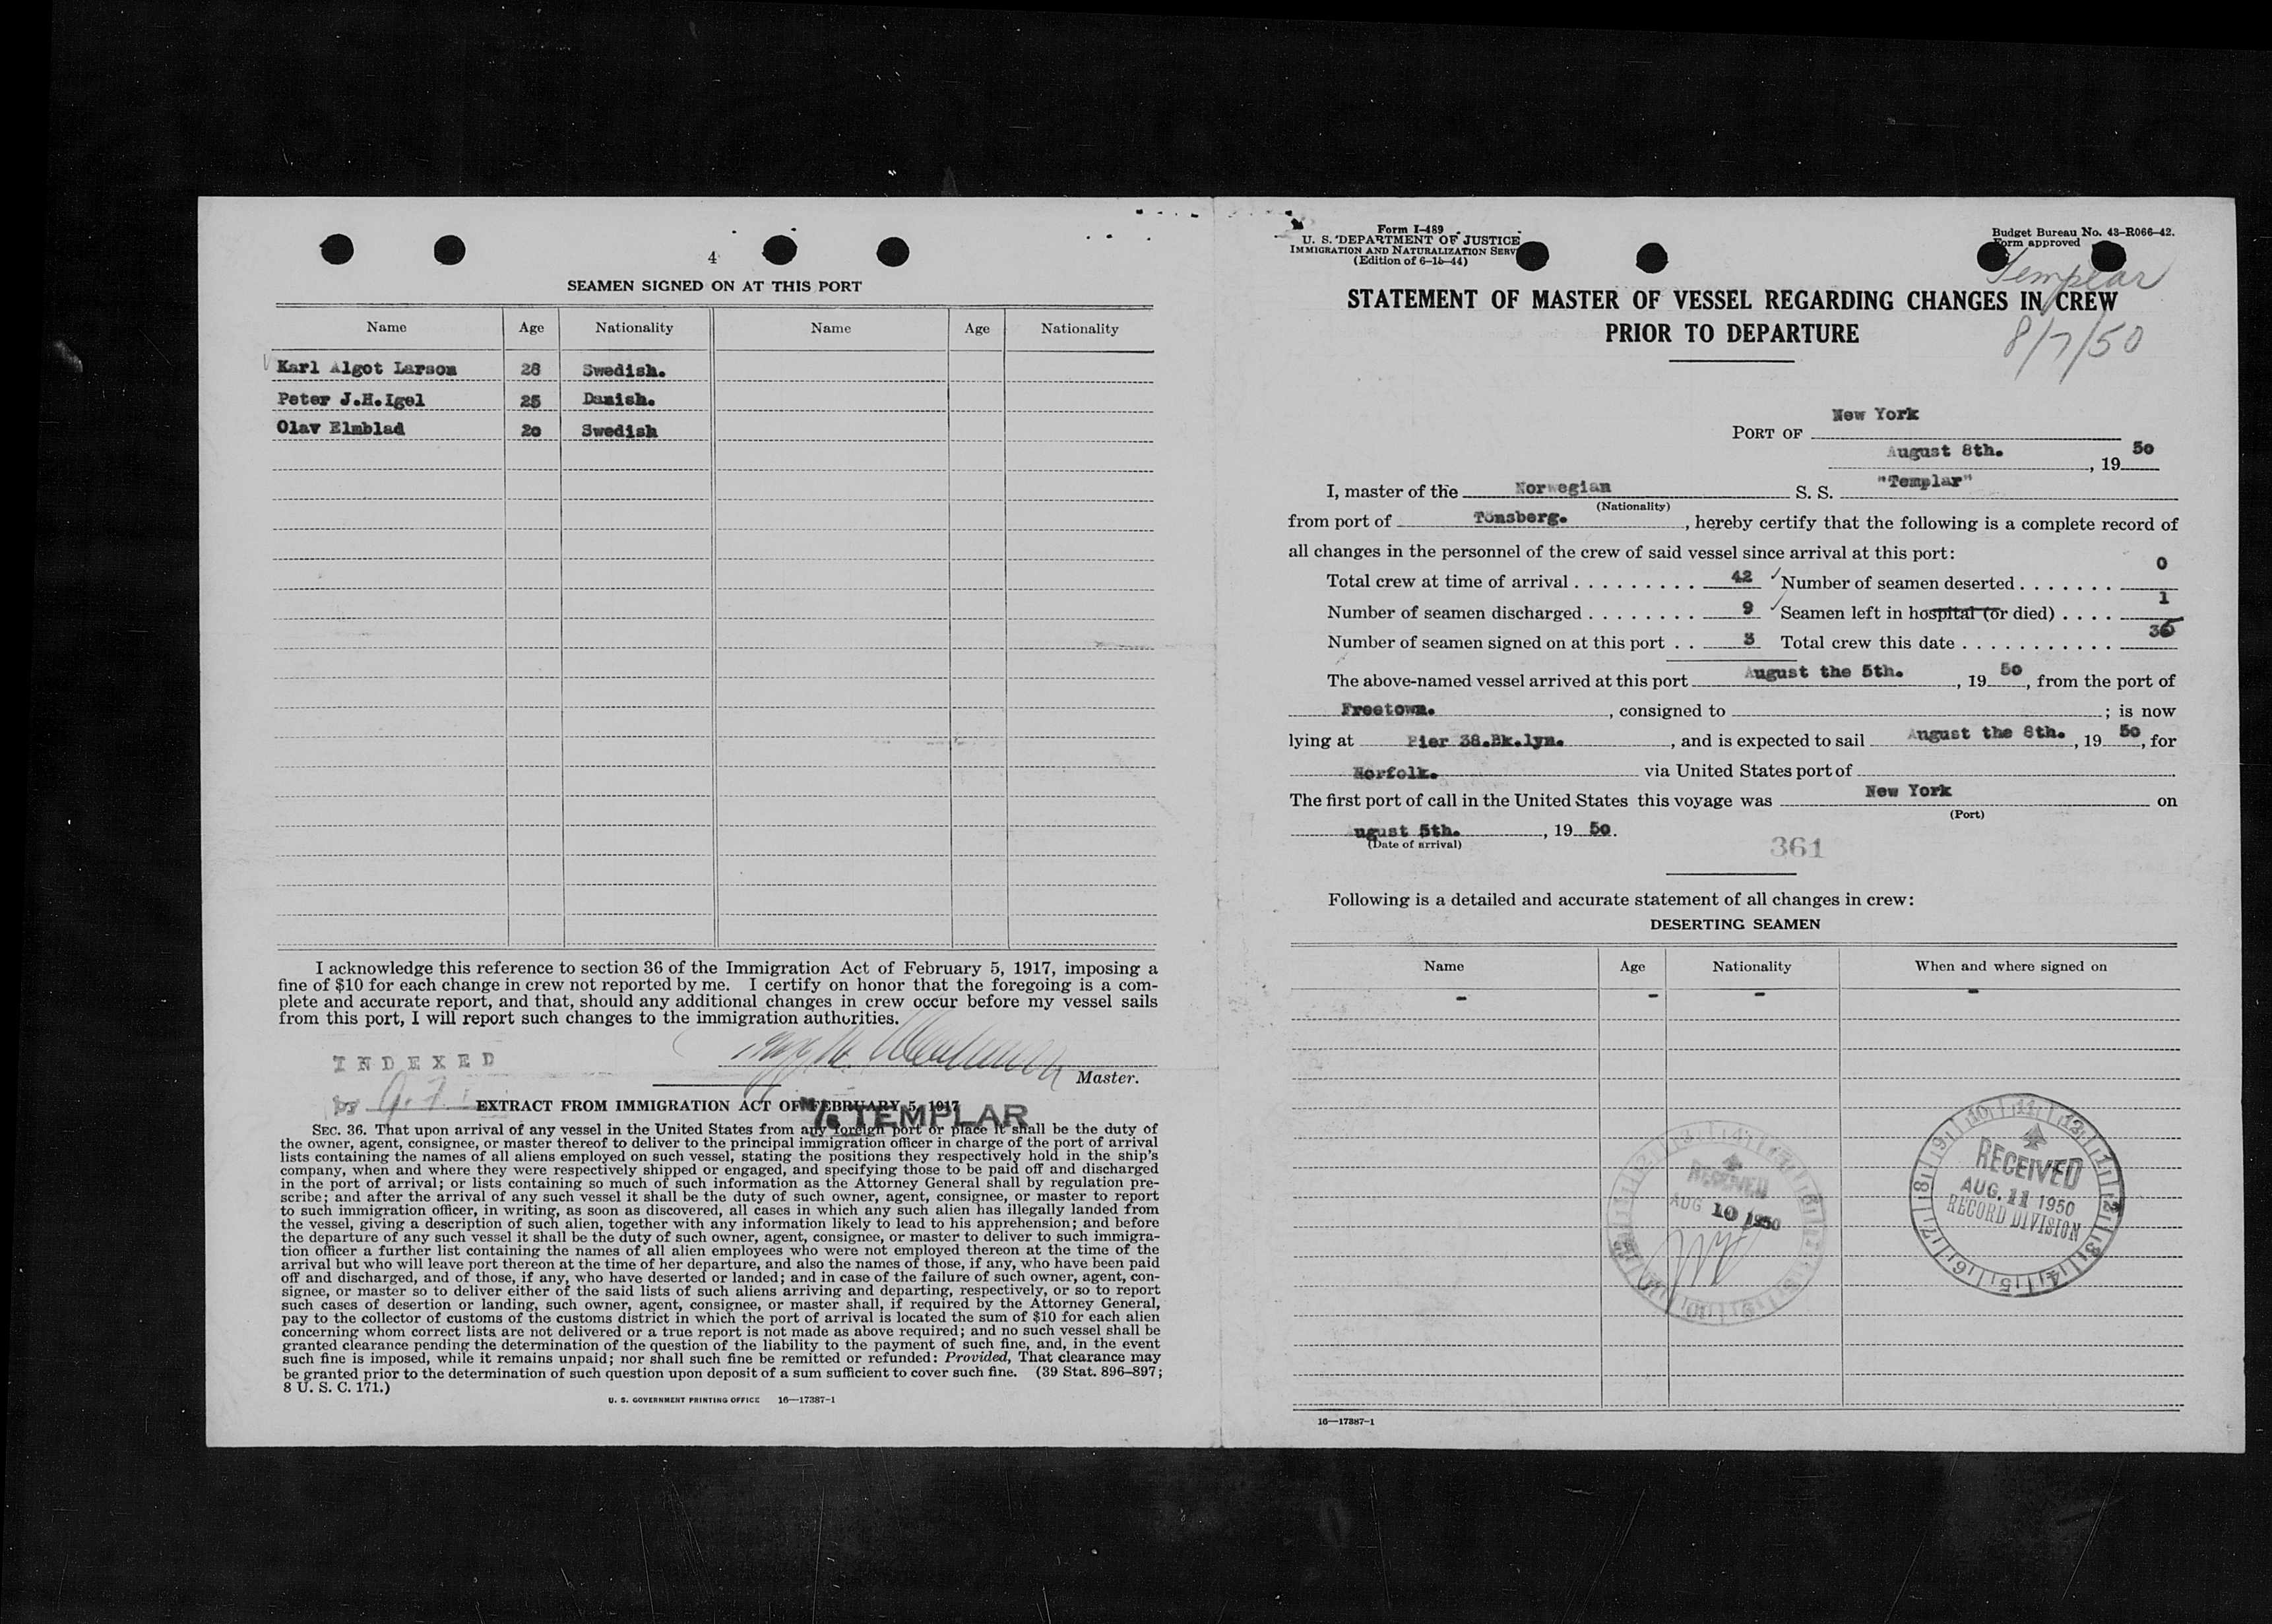 4
SEAMEN SIGNED ON AT THIS PORT
Name Age Nationality Name Age Nationality
Karl Algot Larson 28 Swedish.
Peter J.H.Igel 25 Danish.
Olav Elmblad 20 Swedish
I acknowledge this reference to section 36 of the Immigration Act of February 5, 1917, imposing a
fine of $10 for each change in crew not reported by me. I certify on honor that the foregoing is a com-
plete and accurate report, and that, should any additional changes in crew occur before my vessel sails
from this port, I will report such changes to the immigration authorities.
INDEXED
Master.
by
EXTRACT FROM IMMIGRATION ACT OF FEBRUARY 5, 1917
TEMPLAR
SEC. 36. That upon arrival of any vessel in the United States from any foreign port or place it shall be the duty of
the owner, agent, consignee, or master thereof to deliver to the principal immigration officer in charge of the port of arrival
lists containing the names of all aliens employed on such vessel, stating the positions they respectively hold in the ship's
company, when and where they were respectively shipped or engaged, and specifying those to be paid off and discharged
in the port of arrival; or lists containing so much of such information as the Attorney General shall by regulation pre-
scribe; and after the arrival of any such vessel it shall be the duty of such owner, agent, consignee, or master to report
to such immigration officer, in writing, as soon as discovered, all cases in which any such alien has illegally landed from
the vessel, giving a description of such alien, together with any information likely to lead to his apprehension; and before
the departure of any such vessel it shall be the duty of such owner, agent, consignee, or master to deliver to such immigra-
tion officer a further list containing the names of all alien employees who were not employed thereon at the time of the
arrival but who will leave port thereon at the time of her departure, and also the names of those, if any, who have been paid
off and discharged, and of those, if any, who have deserted or landed; and in case of the failure of such owner, agent, con-
signee, or master so to deliver either of the said lists of such aliens arriving and departing, respectively, or so to report
such cases of desertion or landing, such owner, agent, consignee, or master shall, if required by the Attorney General,
pay to the collector of customs of the customs district in which the port of arrival is located the sum of $10 for each alien
concerning whom correct lists are not delivered or a true report is not made as above required; and no such vessel shall be
granted clearance pending the determination of the question of the liability to the payment of such fine, and, in the event
such fine is imposed, while it remains unpaid; nor shall such fine be remitted or refunded: Provided, That clearance may
be granted prior to the determination of such question upon deposit of a sum sufficient to cover such fine. (39 Stat. 896–897;
8 U. S. C. 171.)
U. S. GOVERNMENT PRINTING OFFICE 16—17387-1
Form I-489
U. S. DEPARTMENT OF JUSTICE
IMMIGRATION AND NATURALIZATION SERV
(Edition of 6-15-44)
Budget Bureau No. 43-R066-42.
Form approved
Templar
STATEMENT OF MASTER OF VESSEL REGARDING CHANGES IN CREW
PRIOR TO DEPARTURE
8/7/50
PORT OF New York
August 8th., 19 50
I, master of the Norwegian S. S. "Templar"
(Nationality)
from port of Tönsberg. , hereby certify that the following is a complete record of
all changes in the personnel of the crew of said vessel since arrival at this port:
Total crew at time of arrival . . . . . . . . . 42 Number of seamen deserted . . . . . . . 0
Number of seamen discharged . . . . . . . . 9 Seamen left in hospital (or died) . . . . 1
Number of seamen signed on at this port . . 3 Total crew this date . . . . . . . . . . .
The above-named vessel arrived at this port August the 5th. , 19 50, from the port of
Freetown. , consigned to ; is now
lying at Pier 38.Bk.lyn. , and is expected to sail August the 8th. , 19 50, for
Norfolk. via United States port of
The first port of call in the United States this voyage was New York on
(Port)
ugust 5th. , 19 50.
(Date of arrival)
361
Following is a detailed and accurate statement of all changes in crew:
DESERTING SEAMEN
Name Age Nationality When and where signed on
- - - -
RECEIVED
AUG 10 1950
RECEIVED
AUG. 11 1950
RECORD DIVISION
16—17387-1